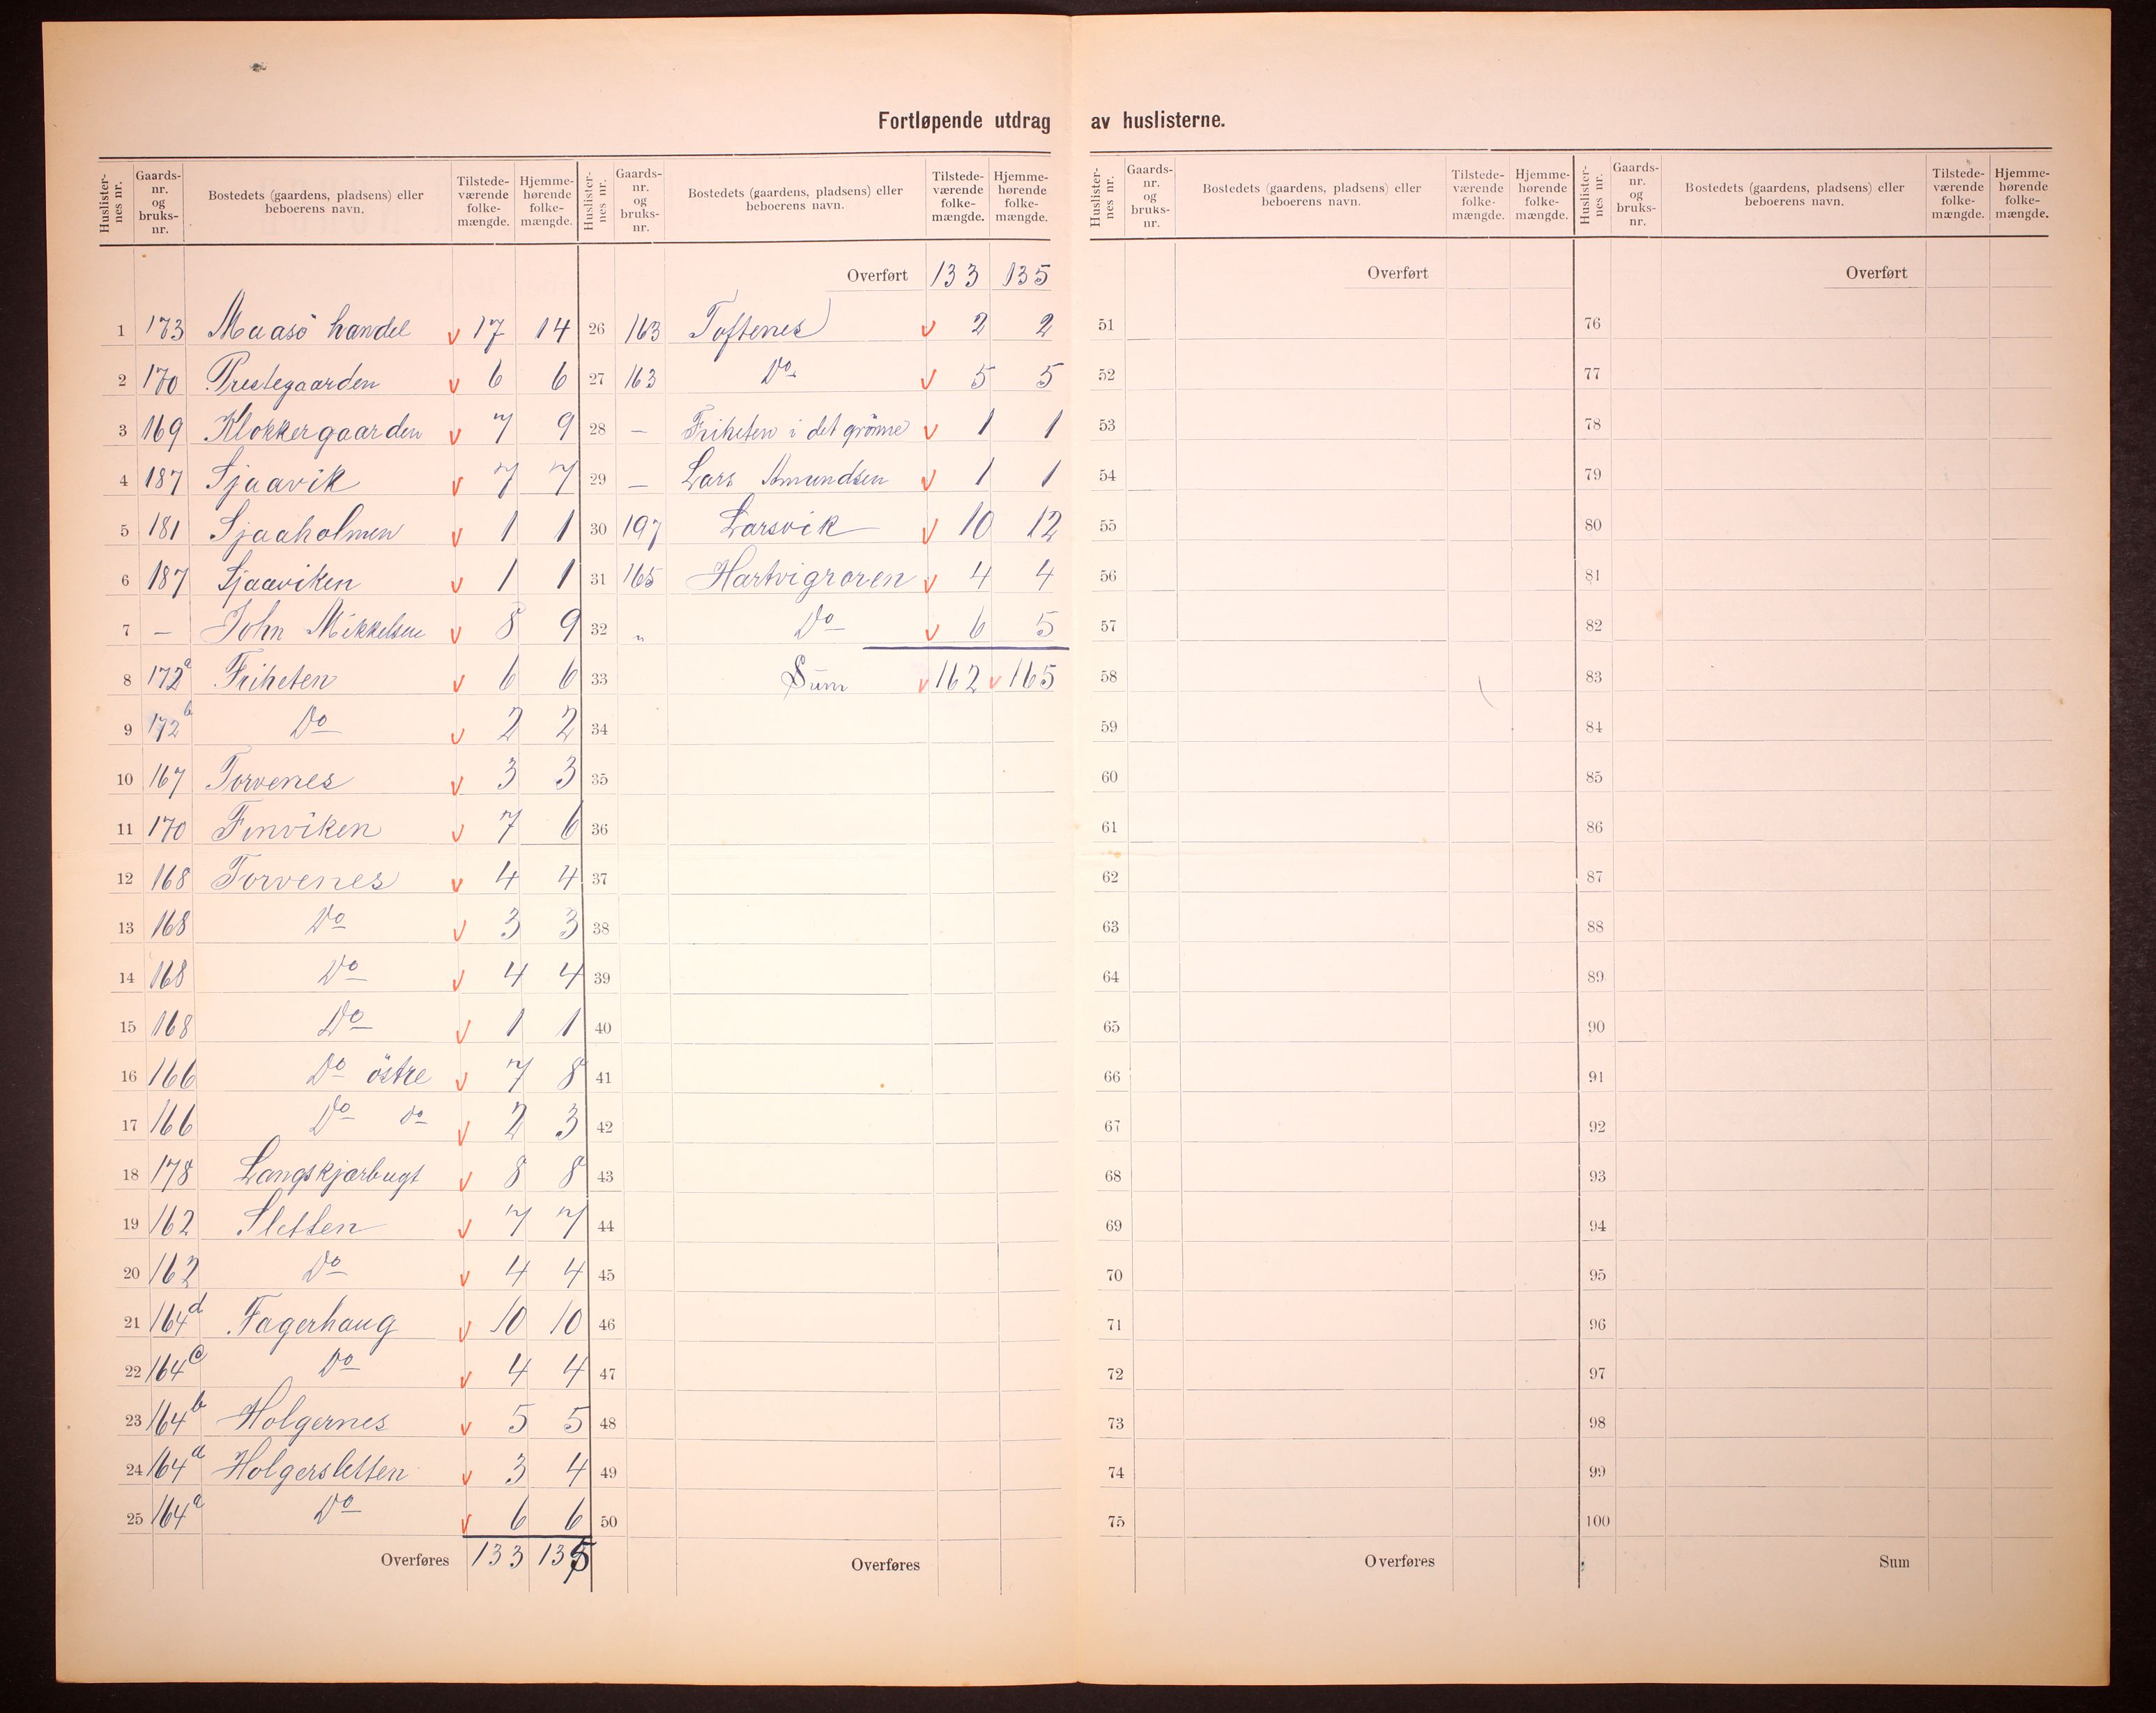 Fortløpende utdrag av huslisterne.
Huslisternes nr. Gaardsnr. og bruksnr. Bostedets (gaardens, pladsens) eller beboerens navn. Tilstedeværende folkemængde. Hjemmehørende folkemængde.
1 173 Maasö handel v 17 14
2 170 Prestegaarden v 6 6
3 169 Klokkergaarden v 7 9
4 187 Sjaavik v 7 7
5 181 Sjaaholmen v 1 1
6 187 Sjaaviken v 1 1
7 — John Mikkelsen v 8 9
8 172a Friheten v 6 6
9 172b Do v 2 2
10 167 Torvenes v 3 3
11 170 Finviken v 7 6
12 168 Torvenes v 4 4
13 168 Do v 3 3
14 168 Do v 4 4
15 168 Do v 1 1
16 166 Do östre v 7 8
17 166 Do do v 2 3
18 178 Langskjærbugt v 8 8
19 162 Sletten v 7 7
20 162 Do v 4 4
21 164d Fagerhaug v 10 10
22 164c Do v 4 4
23 164b Holgernes v 5 5
24 164a Holgersletten v 3 4
25 164a Do v 6 6
Overføres 133 135
Huslisternes nr. Gaardsnr. og bruksnr. Bostedets (gaardens, pladsens) eller beboerens navn. Tilstedeværende folkemængde. Hjemmehørende folkemængde.
Overført 133 135
26 163 Toftenes v 2 2
27 163 Do v 5 5
28 — Friheten i det grönne v 1 1
29 — Lars Amundsen v 1 1
30 197 Larsvik v 10 12
31 165 Hartvigroren v 4 4
32 " Do v 6 5
33 Sum v 162 v 165
34
35
36
37
38
39
40
41
42
43
44
45
46
47
48
49
50
Overføres
Huslisternes nr. Gaardsnr. og bruksnr. Bostedets (gaardens, pladsens) eller beboerens navn. Tilstedeværende folkemængde. Hjemmehørende folkemængde.
Overført
51
52
53
54
55
56
57
58
59
60
61
62
63
64
65
66
67
68
69
70
71
72
73
74
75
Overføres
Huslisternes nr. Gaardsnr. og bruksnr. Bostedets (gaardens, pladsens) eller beboerens navn. Tilstedeværende folkemængde. Hjemmehørende folkemængde.
Overført
76
77
78
79
80
81
82
83
84
85
86
87
88
89
90
91
92
93
94
95
96
97
98
99
100
Sum